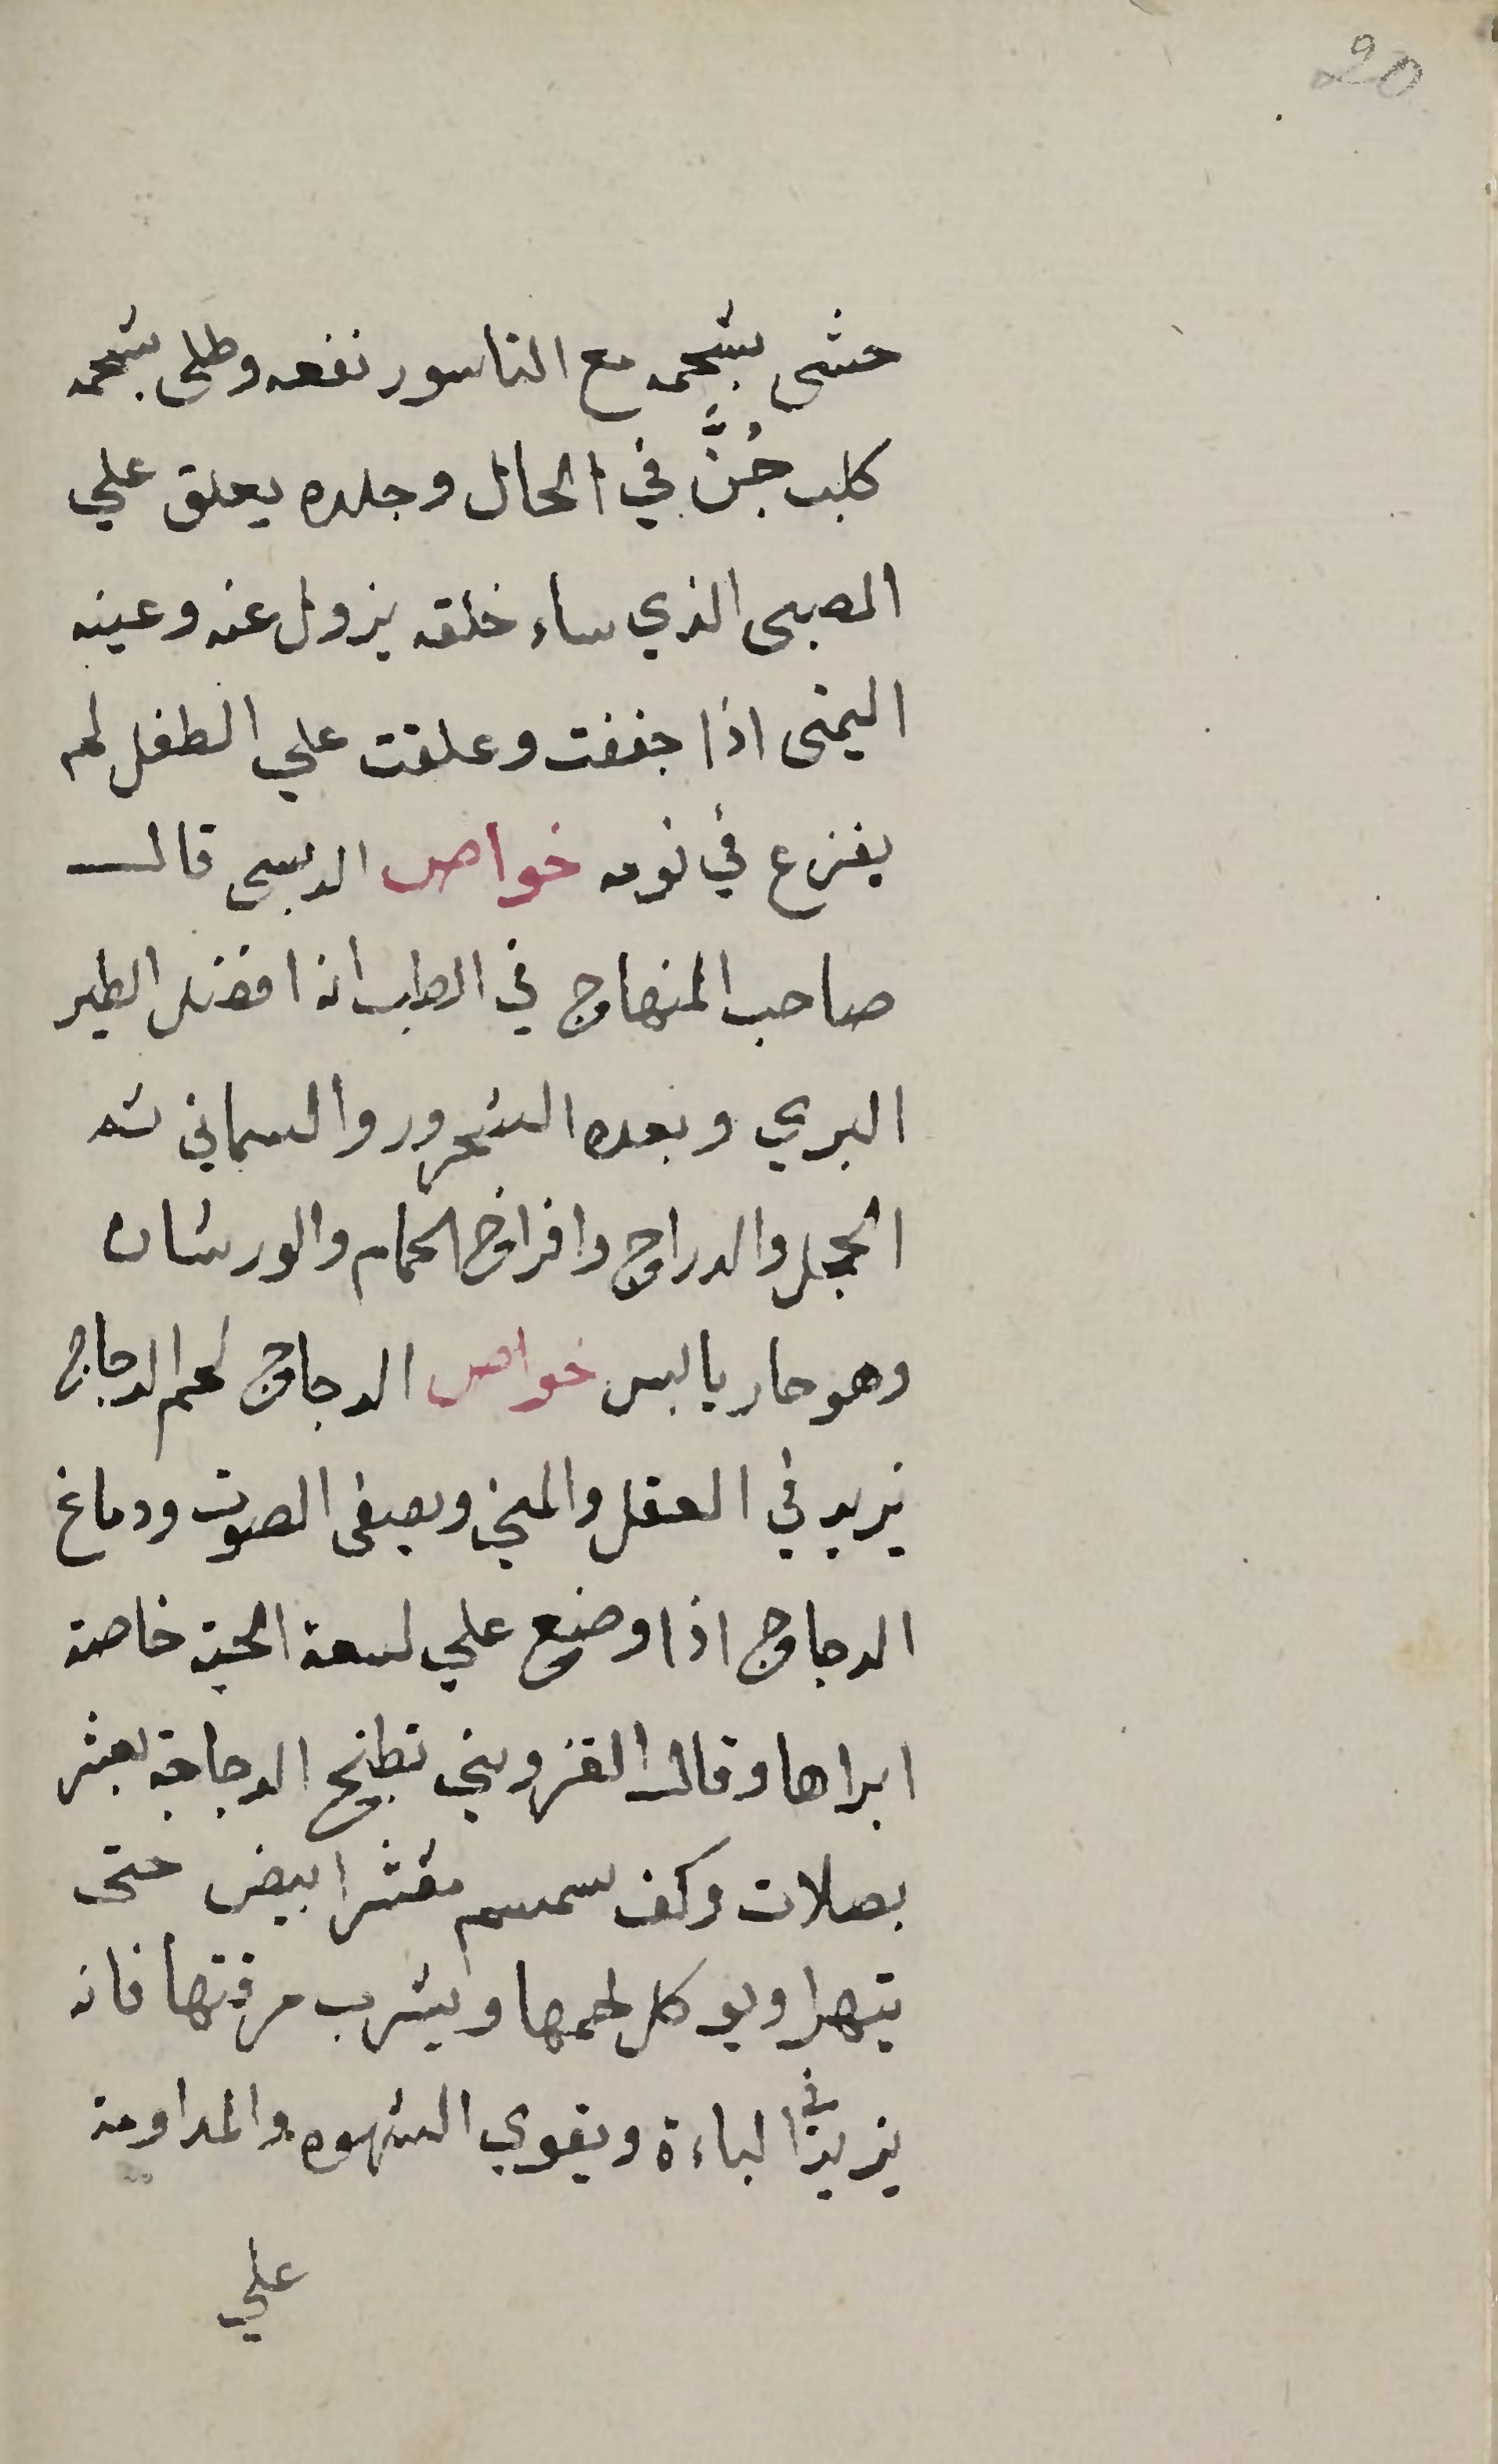 20
حشى بشحمه مع الناسور نفعه وطلى بشحمه
كلب جُنَّ في الحال وجلده يعلق علي
الصبى الذي ساء خلقه يزول عنه وعينه
اليمنى اذا جففت وعلقت علي الطفل لم
يفزع في نومه خواص الدبسى قال
صاحب المنهاج في الطب انه افضل الطير
البري وبعده الشحرور والسماني ثم
الحجل والدراج وافراخ الحمام والورشان
وهو حار يابس خواص الدجاج لحم الدجاج
يزيد في العقل والمني ويصفى الصوت ودماغ
الدجاج اذا وضع علي لسعة الحية خاصة
ابراها وقال القزويني تطبخ الدجاجة بعشر
بصلات وكف سمسم مقشر ابيض حتى
يتهرا ويوكل لحمها ويشرب مرقتها فانه
يزيد في الباءة ويقوي الشهوه والمداومة
علي